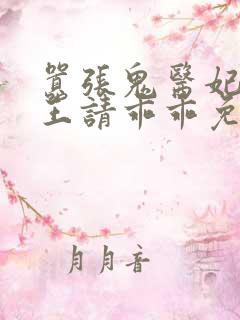 囂張鬼醫妃
王請乖乖兔
月月音